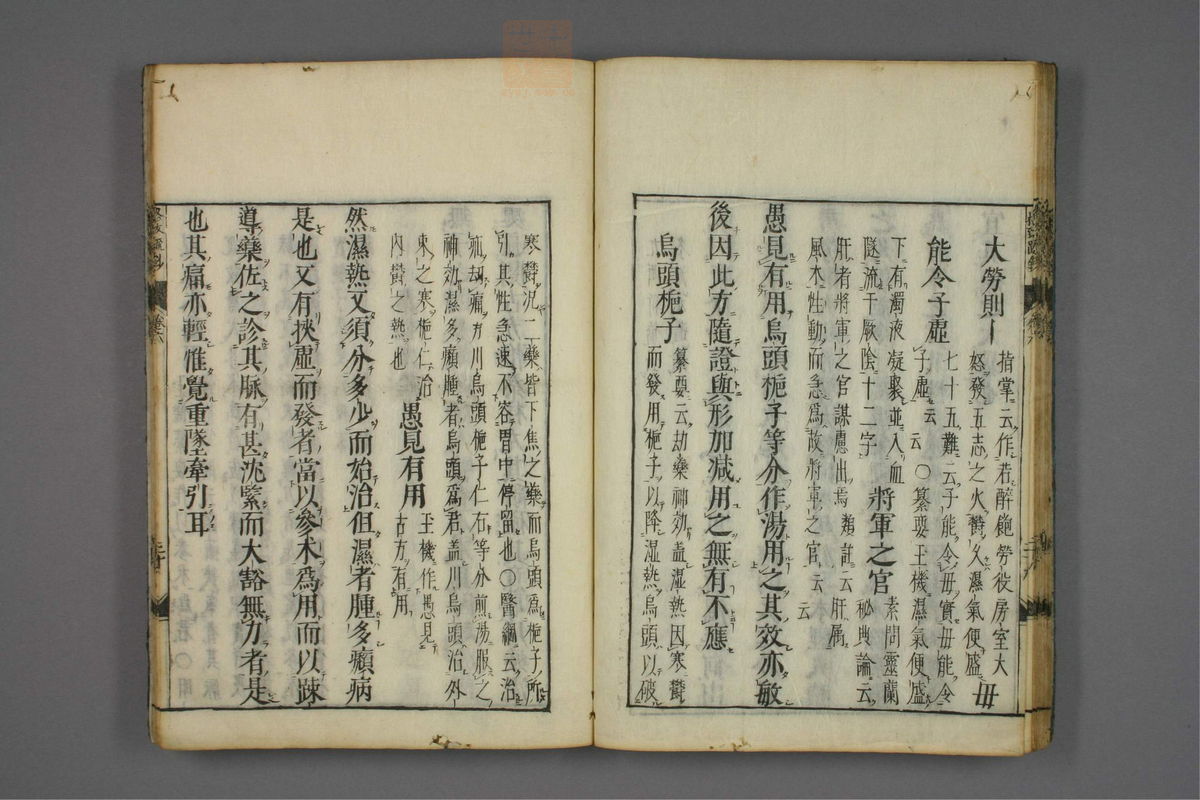 大勞則｜
指掌云作若醉飽勞役房室大
怒發五志之火鬱久濕氣便盛
毋
能令子虛
七十五難云子能令毋實毋能令
子虛云云〇纂要王機濕氣便盛
下有濁液凝聚並入血
隧流于厥陰十二字
將軍之官
素問靈蘭
秘典論云
肝者將軍之官謀慮出焉類註云肝属
風木性動而急爲故將軍之官云云
愚見有用烏頭梔子等分作湯用之其效亦敏
後因此方隨證與形加減用之無有不應
烏頭梔子
纂要云劫藥神効盖湿熱因寒鬱
而發用梔子以降湿熱烏頭以破
寒鬱况二藥皆下焦之藥而烏頭爲梔子所
引其性急速不容胃中停留也〇醫綱云治
疝劫痛方川烏頭梔子仁右等分煎湯服之
神効濕多癩腫者烏頭爲君盖川烏頭治外
束之寒梔仁治
內鬱之熱也
愚見有用
王機作愚見
古方有用
然濕熱又須分多少而始治但濕者腫多癩病
是也又有挾虛而發者當以參朮爲用而以踈
導藥佐之診其脉有甚沈緊而大豁無力者是
也其痛亦輕惟覺重墜牽引耳